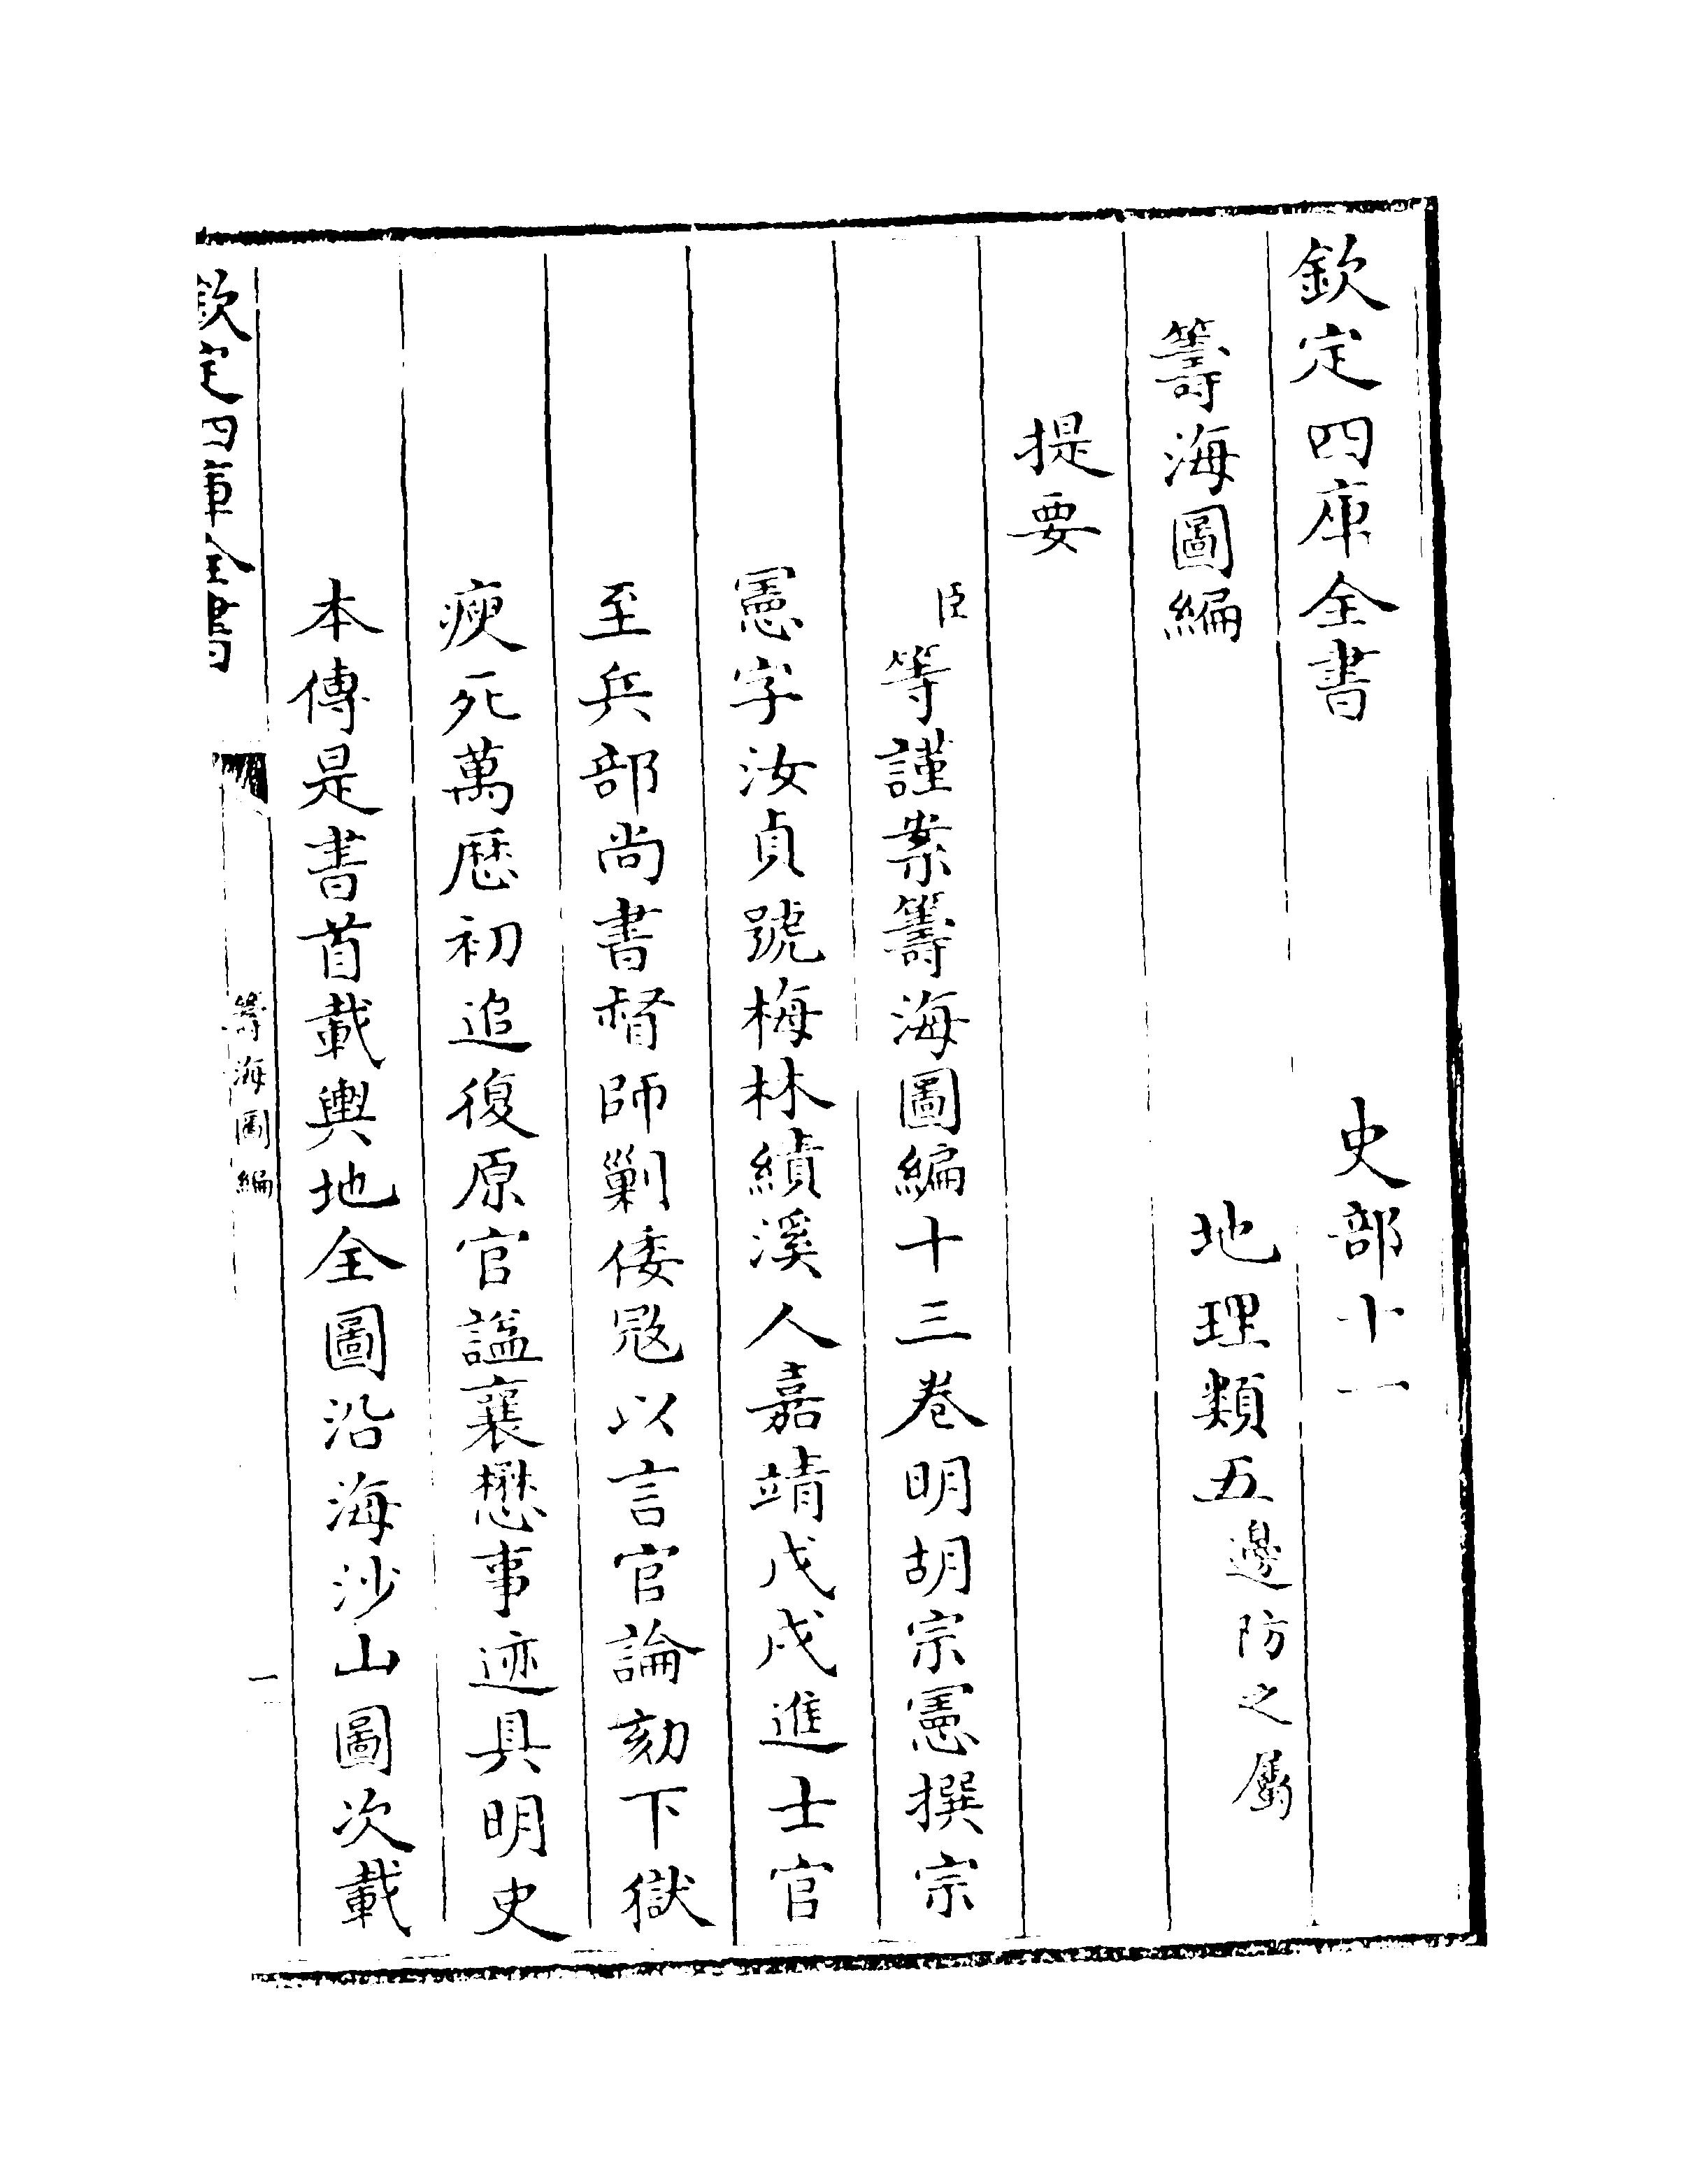 欽定四庫全書　史部十一
籌海圖編　地理類五邊防之屬
提要
臣等謹案籌海圖編十三卷明胡宗憲撰宗
憲字汝貞號梅林績溪人嘉靖戊戌進士官
至兵部尚書督師剿倭寇以言官論劾下獄
瘐死萬厯初追復原官諡襄懋事迹具明史
本傳是書首載輿地全圖沿海沙山圖次載
欽定四庫全書　籌海圖編　一